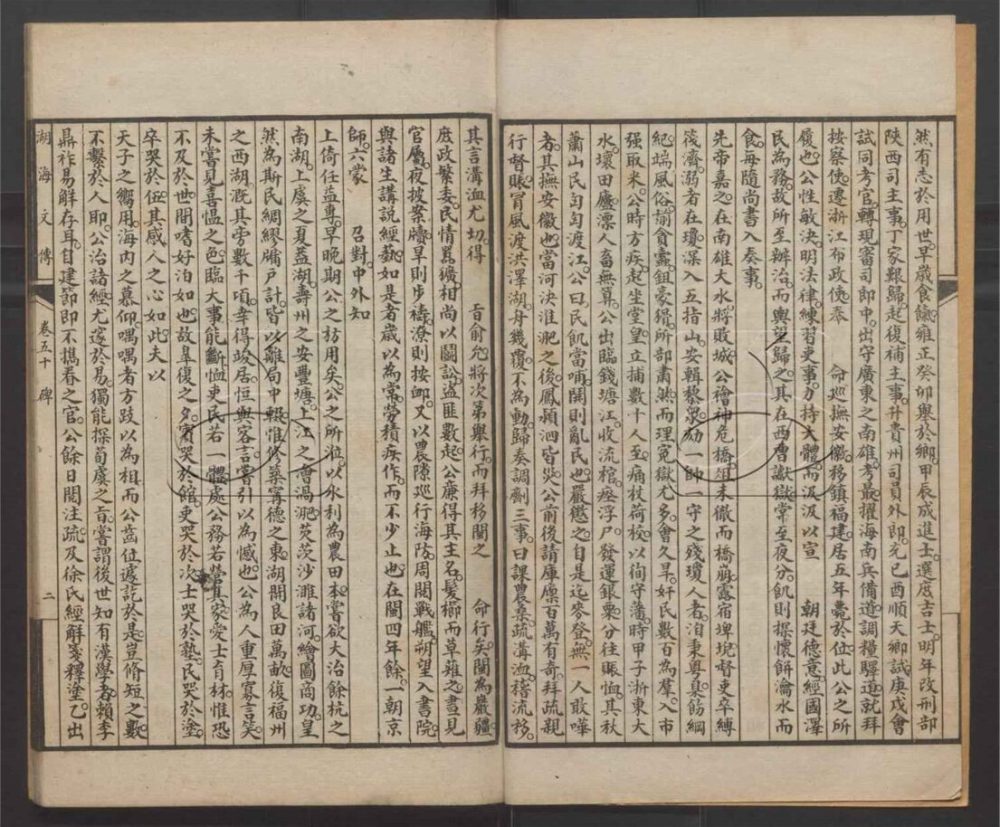 然有志於用世早歲食餼雍正癸卯舉於鄉甲辰成進士選庶吉士明年改刑部
陝西司主事丁家艱歸起復補主事升貴州司員外郎充己酉順天鄉試庚戌會
試同考官轉現審司郎中出守廣東之南雄考最擢海南兵備道調糧驛道就拜
按察使遷浙江布政使奉 命巡撫安徽移鎮福建居五年薨於位此公之所
履也公性敏決明法律練習吏事力持大體而汲汲以宣 朝廷德意經國澤
民為務故所至辦治而輿望歸之其在西曹讞獄常至夜分飢則探懷餅瀹水而
食每隨尚書入奏事
先帝嘉之在南雄大水將敗城公禬神危橋俎未徹而橋崩露宿埤堄督吏卒縛
筏濟溺者在瓊深入五指山安輯黎眾劾一帥一守之殘瓊人者洎東粵臭飭綱
紀端風俗諭貪蠹鉏豪猾所部肅然而理冤獄尤多會久旱奸民數百為羣入市
强取米公時方疾起坐堂皇立捕數十人至痛杖荷校以徇守藩時甲子浙東大
水壞田廬漂人畜無算公出臨錢塘江收流棺瘞浮尸發運銀粟分往賑恤其秋
蕭山民匈匈渡江公曰民飢當哺鬨則亂民也嚴懲之自是迄麥登無一人敢嘩
者其撫安徽也當河決淮淝之後鳳潁泗皆災公前後請庫廪百萬有奇拜疏親
行督賑冒風渡洪澤湖舟幾覆不為動歸奏調劑三事曰課農桑疏溝洫稽流移
其言溝洫尤切得 旨俞允將次第舉行而拜移閩之 命行矣閩為巖疆
庶政繁委民情嚚獷相尚以鬭訟盜匪數起公廉得其主名髮櫛而草薙之晝見
官屬夜披案牘旱則步禱潦則按鄉又以農隙巡行海防周閱戰艦朔望入書院
與諸生講説經藝如是者歲以為常勞積疾作而不少止也在閩四年餘一朝京
師六蒙 召對中外知
上倚任益專早晚期公之枋用矣公之所涖以水利為農田本嘗欲大治餘杭之
南湖上虞之夏蓋湖壽州之安豐塘上江之澮渦淝茨沙濉諸河繪圖商功皇
然為斯民綢繆牖戶計皆以離局中輟惟修築寧德之東湖闢良田萬畝復福州
之西湖溉其旁數千頃幸得竣居恒與客言嘗引以為憾也公為人重厚寡言笑
未嘗見喜愠之色臨大事能斷恤吏民若一體處公務若營其家愛士育林惟恐
不及於世閒嗜好泊如也故臯復之夕賓哭於館吏哭於次士哭於塾民哭於塗
卒哭於伍其感人之心如此夫以
天子之嚮用海内之慕仰喁喁者方跂以為相而公齒位遽訖於是豈脩短之數
不繫於人即公治諸經尤邃於易獨能探荀虞之旨嘗謂後世知有漢學者賴李
鼎祚易解存耳自建節即不攜看之官公餘日閱注疏及徐氏經解箋釋塗乙出
湖海文傳 卷五十 碑 二